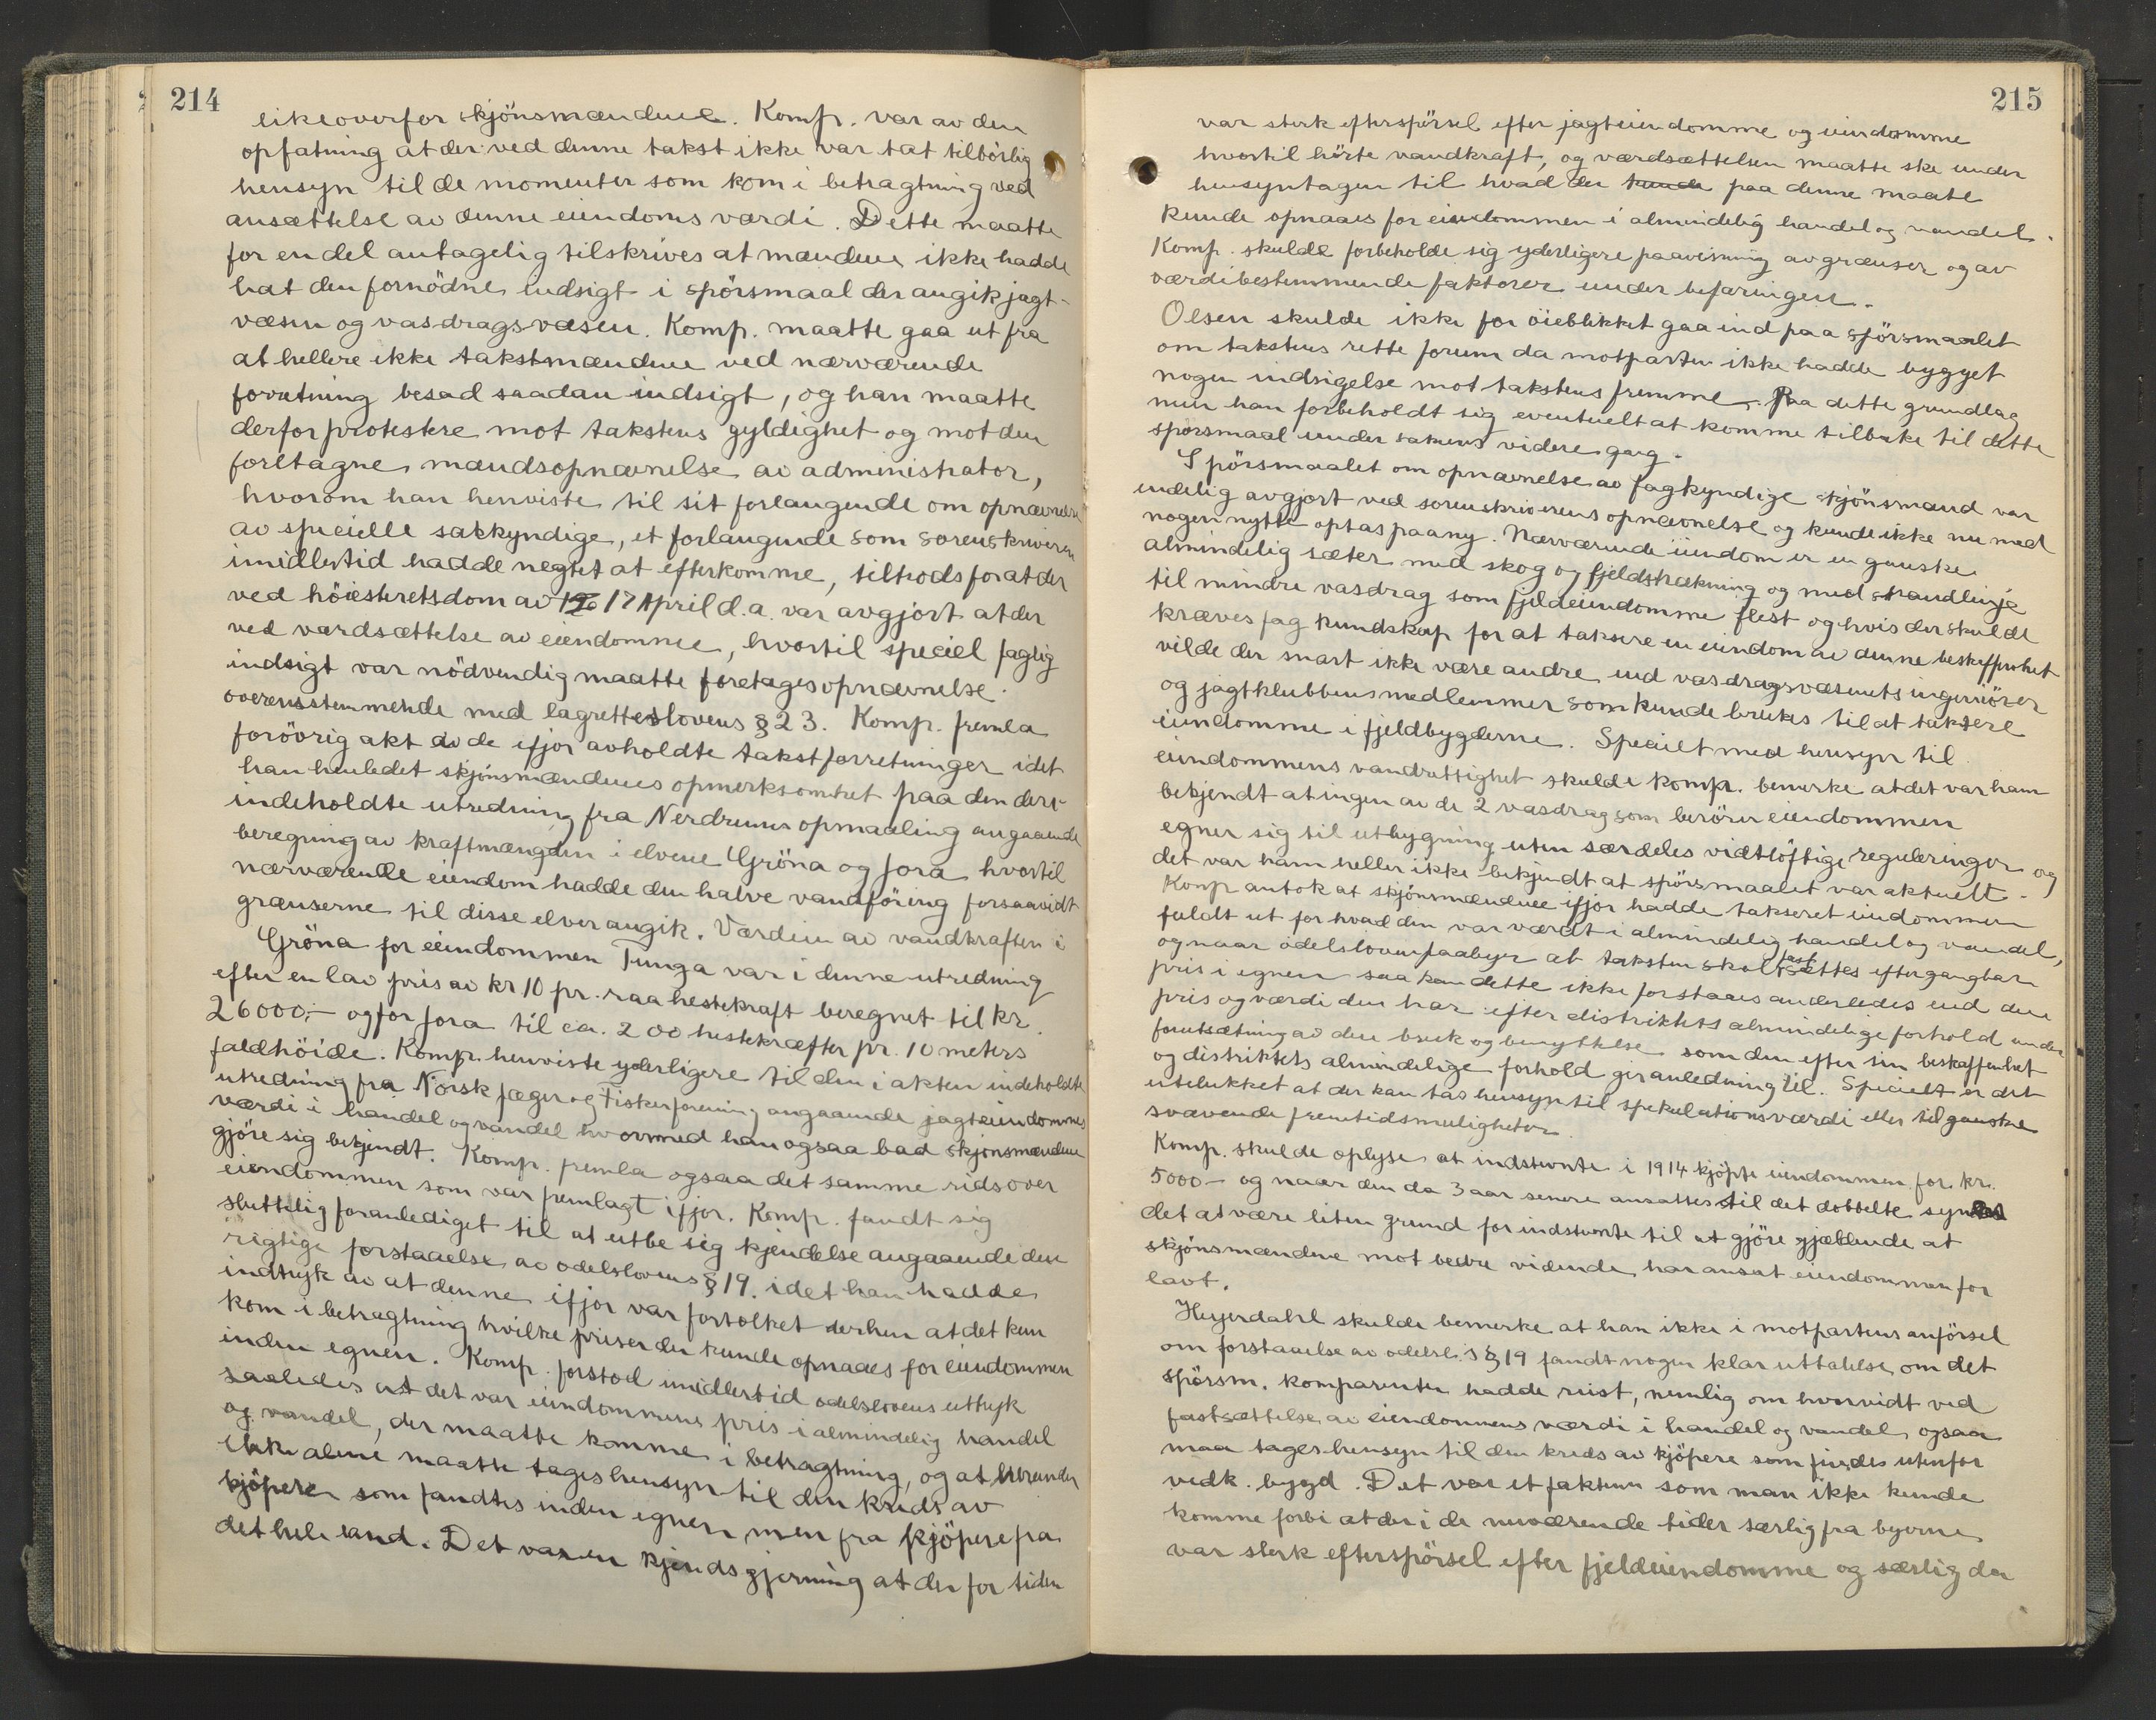 214
likeoverfor skjönsmændene. Komp. var av den
opfatning at der ved denne takst ikke var tat tilbörlig
hensyn til de momenter som kom i betragtning ved
ansættelse av denne eiendoms værdi. Dette maatte
for en del antagelig tilskrives at mændene ikke hadde
hat den fornödne indsigt i spörsmaal der angik jagt-
væsen og vasdragsvæsen. Komp. maatte gaa ut fra
at hellere ikke takstmændene ved nærværende
forretning besad saadan indsigt, og han maatte
derfor protestere mot takstens gyldighet og mot den
foretagne mandsopnævnelse av administrator,
hvorom han henviste til sit forlangende om opnævnelse
av specielle sakkyndige, et forlangende som sorenskriveren
imidlertid hadde negtet at efterkomme, tiltrods for at der
ved höiesteretsdom av 17 April d.a. var avgjort at der
ved værdsættelse av eiendomme, hvortil speciel faglig
indsigt var nödvendig maatte foretages opnævnelse
overensstemmende med lagretteslovens § 23. Komp. fremla
forövrig akt av de ifjor avholdte takstforretninger idet
han henledet skjönsmændenes opmerksomhet paa den deri
indeholdte utredning fra Nerdrums opmaaling angaaende
beregning av kraftmængden i elvene Gröna og Jora hvortil
nærværende eiendom hadde den halve vandföring forsaavidt
grænserne til disse elver angik. Værdien av vandkraften i
Gröna for eiendommen Tunga var i denne utredning
efter en lav pris av kr 10 pr. raa hestekraft beregnet til kr.
26000,- og for Jora til ca. 200 hestekræfter pr. 10 meters
faldhöide. Komp. henviste yderligere til den i akten indeholdte
utredning fra Norsk Jæger og Fiskerforening angaaende jagteiendommes
værdi i handel og vandel hvormed han ogsaa bad skjönsmændene
gjöre sig bekjendt. Komp. fremla ogsaa det samme rids over
eiendommen som var fremlagt ifjor. Komp. fandt sig
sluttelig foranlediget til at utbe sig kjendelse angaaende den
rigtige forstaaelse av odelslovens § 19. idet han hadde
indtryk av at denne ifjor var fortolket derhen at det kun
kom i betragtning hvilke priser der kunde opnaaes for eiendommen
inden egnen. Komp. forstod imidlertid odelslovens uttryk
saaledes at det var eiendommens pris i almindelig handel
og vandel, der maatte komme i betragtning, og at
ikke alene maatte tages hensyn til den kreds av
kjöpere som fandtes inden egnen men fra kjöpere fra
det hele land. Det var en kjendsgjerning at der for tiden
215
var sterk efterspörsel efter jagteiendomme og eiendomme
hvortil hörte vandkraft, og værdsættelsen maatte ske under
hensyntagen til hvad der kunde paa denne maate
kunde opnaaes for eiendommen i almindelig handel og vandel.
Komp. skulde forbeholde sig yderligere paavisning av grænser og av
værdibestemmende faktorer under befaringen.
Olsen skulde ikke for öieblikket gaa ind paa spörsmaalet
om takstens rette forum da motparten ikke hadde bygget
nogen indsigelse mot takstens fremme. Paa dette grundlag
men han forbeholdt sig eventuelt at komme tilbake til dette
spörsmaal under sakens videre gang.
Spörsmaalet om opnævnelse av fagkyndige skjönsmænd var
endelig avgjort ved sorenskriverens opnævnelse og kunde ikke nu med
nogen nytte optas paany. Nærværende eiendom er en ganske
almindelig sæter med skog og fjeldstrækning og med strandlinje
til mindre vasdrag som fjeldeiendomme flest og hvis der skulde
kræves fag kundskap for at taksere en eiendom av denne beskaffenhet
vilde der snart ikke være andre end vasdragsvæsenets ingeniörer
og jagtklubbens medlemmer som kunde brukes til at taksere
eiendomme i fjeldbygderne. Specielt med hensyn til
eiendommens vandrettighet skulde komp. bemerke at det var ham
bekjendt at ingen av de 2 vasdrag som berörer eiendommen
egner sig til utbygning uten særdeles vidtlöftige reguleringer og
det var ham heller ikke bekjendt at spörsmaalet var aktuelt.
Komp antok at skjönsmændene ifjor hadde takseret eiendommen
fuldt ut for hvad den var værdt i almindelig handel og vandel,
og naar odelsloven paabyr at taksten skal fastsættes efter gangbar
pris i egnen saa kan dette ikke forstaaes anderledes end den
pris og værdi den har efter distriktets almindelige forhold under
forutsætning av den bruk og benyttelse som den efter sin beskaffenhet
og distriktets almindelige forhold gir anledning til. Specielt er det
utelukket at der kan tas hensyn til spekulationsværdi eller til ganske
svævende fremtidsmuligheter.
Komp. skulde oplyse at indstevnte i 1914 kjöpte eiendommen for kr.
5000- og naar den da 3 aar senere ansattes til det dobbelte synes
det at være liten grund for indstevnte til at gjöre gjældende at
skjönsmændene mot bedre vidende har ansat eiendommen for
lavt.
Heyerdahl skulde bemerke at han ikke i motpartens anförsel
om forstaaelse av odelsl.s § 19 fandt nogen klar uttalelse om det
spörsm. komparenten hadde reist, nemlig om hvorvidt ved
fastsættelse av eiendommens værdi i handel og vandel ogsaa
maa tages hensyn til den kreds av kjöpere som findes utenfor
vedk. bygd. Det var et faktum som man ikke kunde
komme forbi at der i de nuværende tider særlig fra byerne
var sterk efterspörsel efter fjeldeiendomme og særlig da